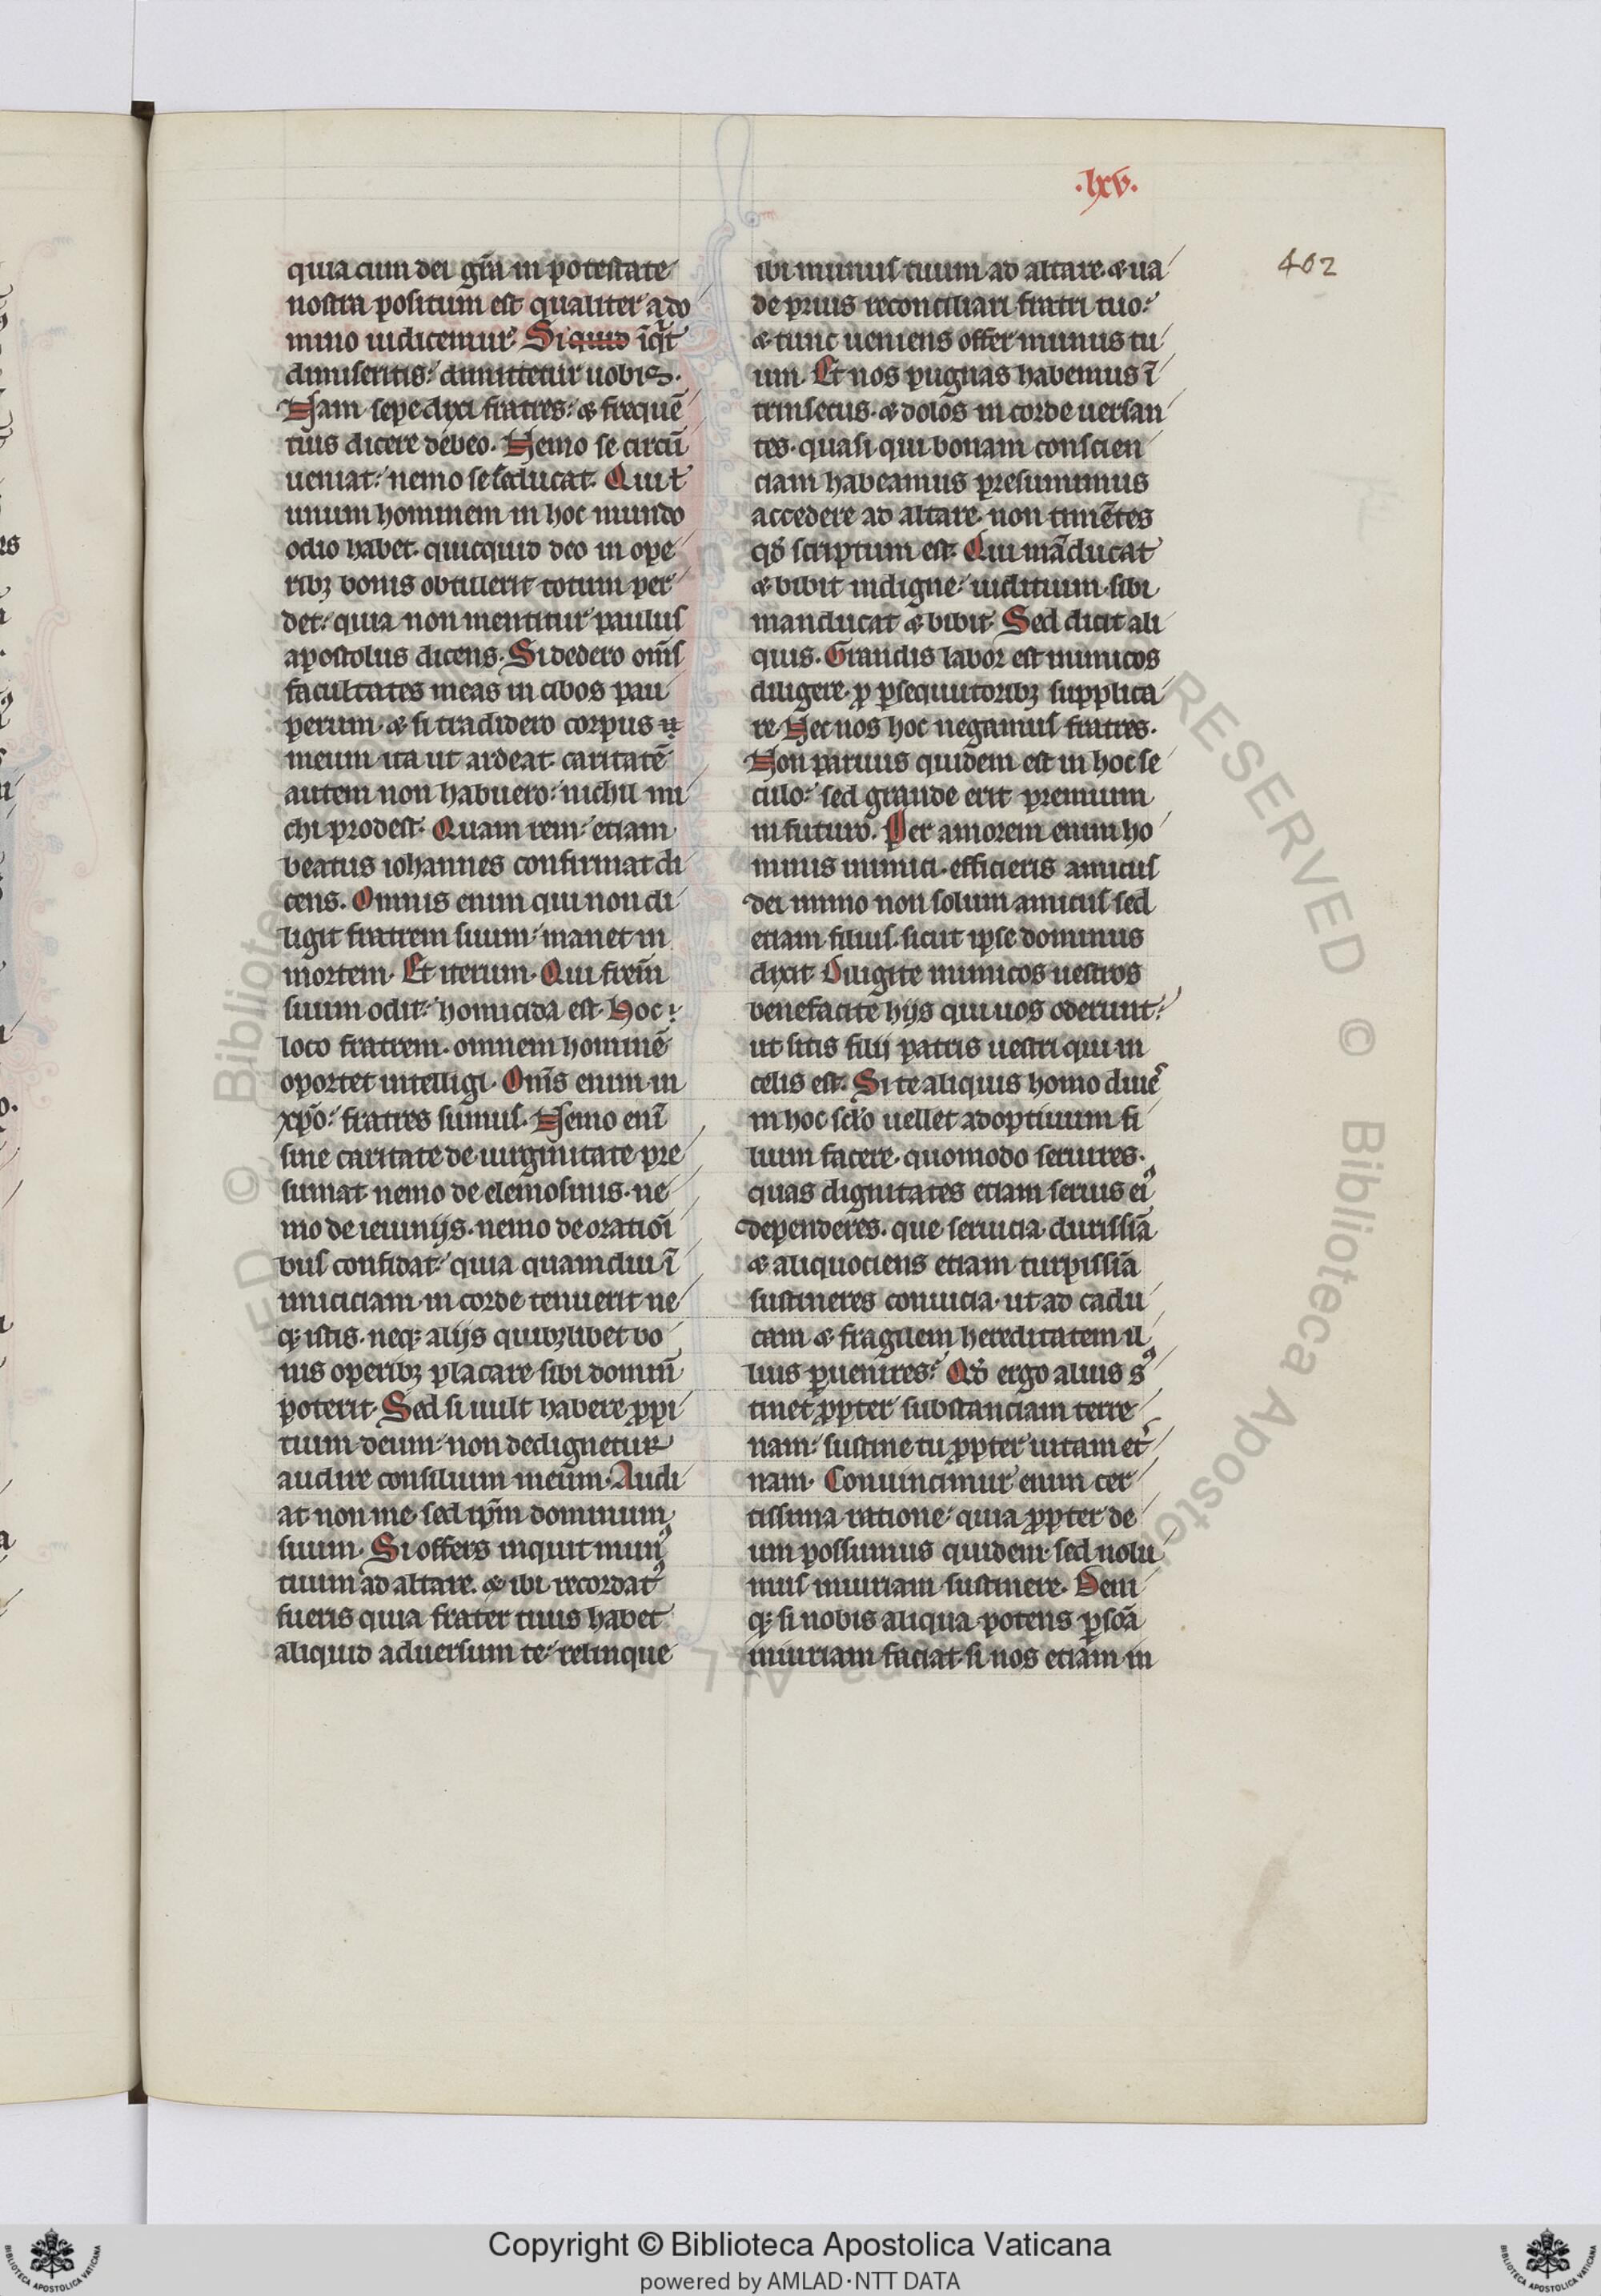 .lxv.
402
quia cum dei gr̃a in potestate
nostra positum est qualiter a do
mino iudicemur. Si quid inq̃t
dimiseritis: dimittetur uobis.
Nam sepe dixi fratres: & frequẽ
tius dicere debeo. Nemo se circũ
ueniat: nemo se seducat. Qui ł
unum hominem in hoc mundo
odio habet. quicquid deo in ope
ribꝫ bonis obtulerit totum per
det: quia non mentitur paulus
apostolus dicens. Si dedero om̃s
facultates meas in cibos pau
perum. & si tradidero corpus
meum ita ut ardeat. caritatẽ
autem non habuero: nichil mi
chi prodest. Quam rem: etiam
beatus iohannes confirmat di
cens. Omnis enim qui non di
ligit fratrem suum: manet in
mortem. Et iterum. Qui frem̃
suum odit: homicida est. Hoc :
loco fratrem. omnem hominẽ
oportet intelligi. Om̃s enim in
xp̃o: fratres sumus. Nemo enĩ
sine caritate de uirginitate pre
sumat. nemo de elemosinis. ne
mo de ieiunijs. nemo de orationĩ
bus confidat: quia quamdiu ĩ
imiciciam in corde tenuerit ne
qꝫ istis. neqꝫ alijs quibꝫlibet bo
nis operibꝫ placare sibi dominũ
poterit. Sed si uult habere ꝓpi
tium deum: non dedignetur
audire consilium meum. Audi
at non me. sed ip̃m dominum
suum. Si offers inquit munꝰ
tuum ad altare. & ibi recordatꝰ
fueris quia frater tuus habet
aliquid aduersum te: relinque
ibi munus tuum ad altare. & ua
de prius reconciliari fratri tuo:
& tunc ueniens offer munus tu
um. Et nos pugnas habemus ĩ
trinsecus. & dolos in corde uersan
tes. quasi qui bonam conscien
ciam habeamus presumimus
accedere ad altare. non timẽtes
qđ scriptum est. Qui mãducat
& bibit indigne: iuditium sibi
manducat & bibit. Sed dicit ali
quis. Grandis labor est inimicos
diligere. ꝓ ꝑsequutoribꝫ supplica
re. Nec nos hoc negamus fratres.
Non paruus quidem est in hoc se
culo: sed grande erit premium
in futuro. Per amorem enim ho
minis inimici. efficieris amicus
dei. immo non solum amicus sed
etiam filius. sicut ipse dominus
dixit. Diligite inimicos uestros
benefacite hijs qui uos oderunt:
ut sitis filij patris uestri qui in
celis est. Si te aliquis homo diuẽ
in hoc sclo uellet adoptiuum fi
lium facere. quomodo seruires.
quas dignitates etiam seruis eiꝰ
dependeres. que seruicia. durissĩa
& aliquociens etiam turpissĩa
sustineres conuicia. ut ad cadu
cam & fragilem hereditatem il
lius ꝑuenires: Qđ ergo alius sꝰ
tinet ꝓpter substanciam terre
nam: sustine tu ꝓpter uitam et̾
nam. Conuincimur enim cer
tissima ratione: quia ꝓpter de
um possumus quidem. sed nolu
mus iniuriam sustinere. Deni
qꝫ si nobis aliqua potens ꝑsõa
iniuriam faciat. si nos etiam in
Copyright © Biblioteca Apostolica Vaticana
powered by AMLAD·NTT DATA